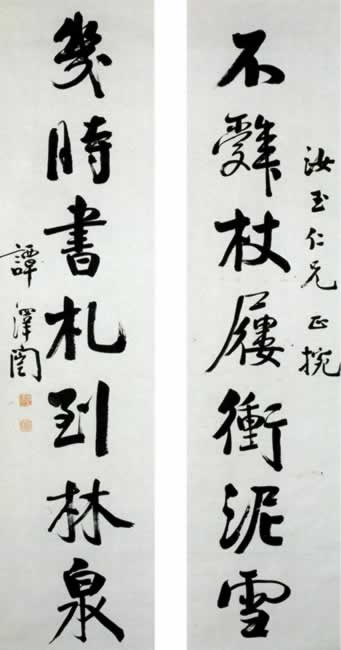 汝玉仁兄正捥
不辭杖屨衝泥雪
幾時書札到林泉
譚澤闓